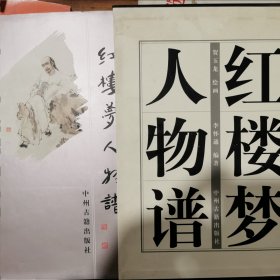 红楼梦
人物谱
贺玉龙 绘画
李怀强 编著
中州古籍出版社
红楼梦人物谱
中州古籍出版社